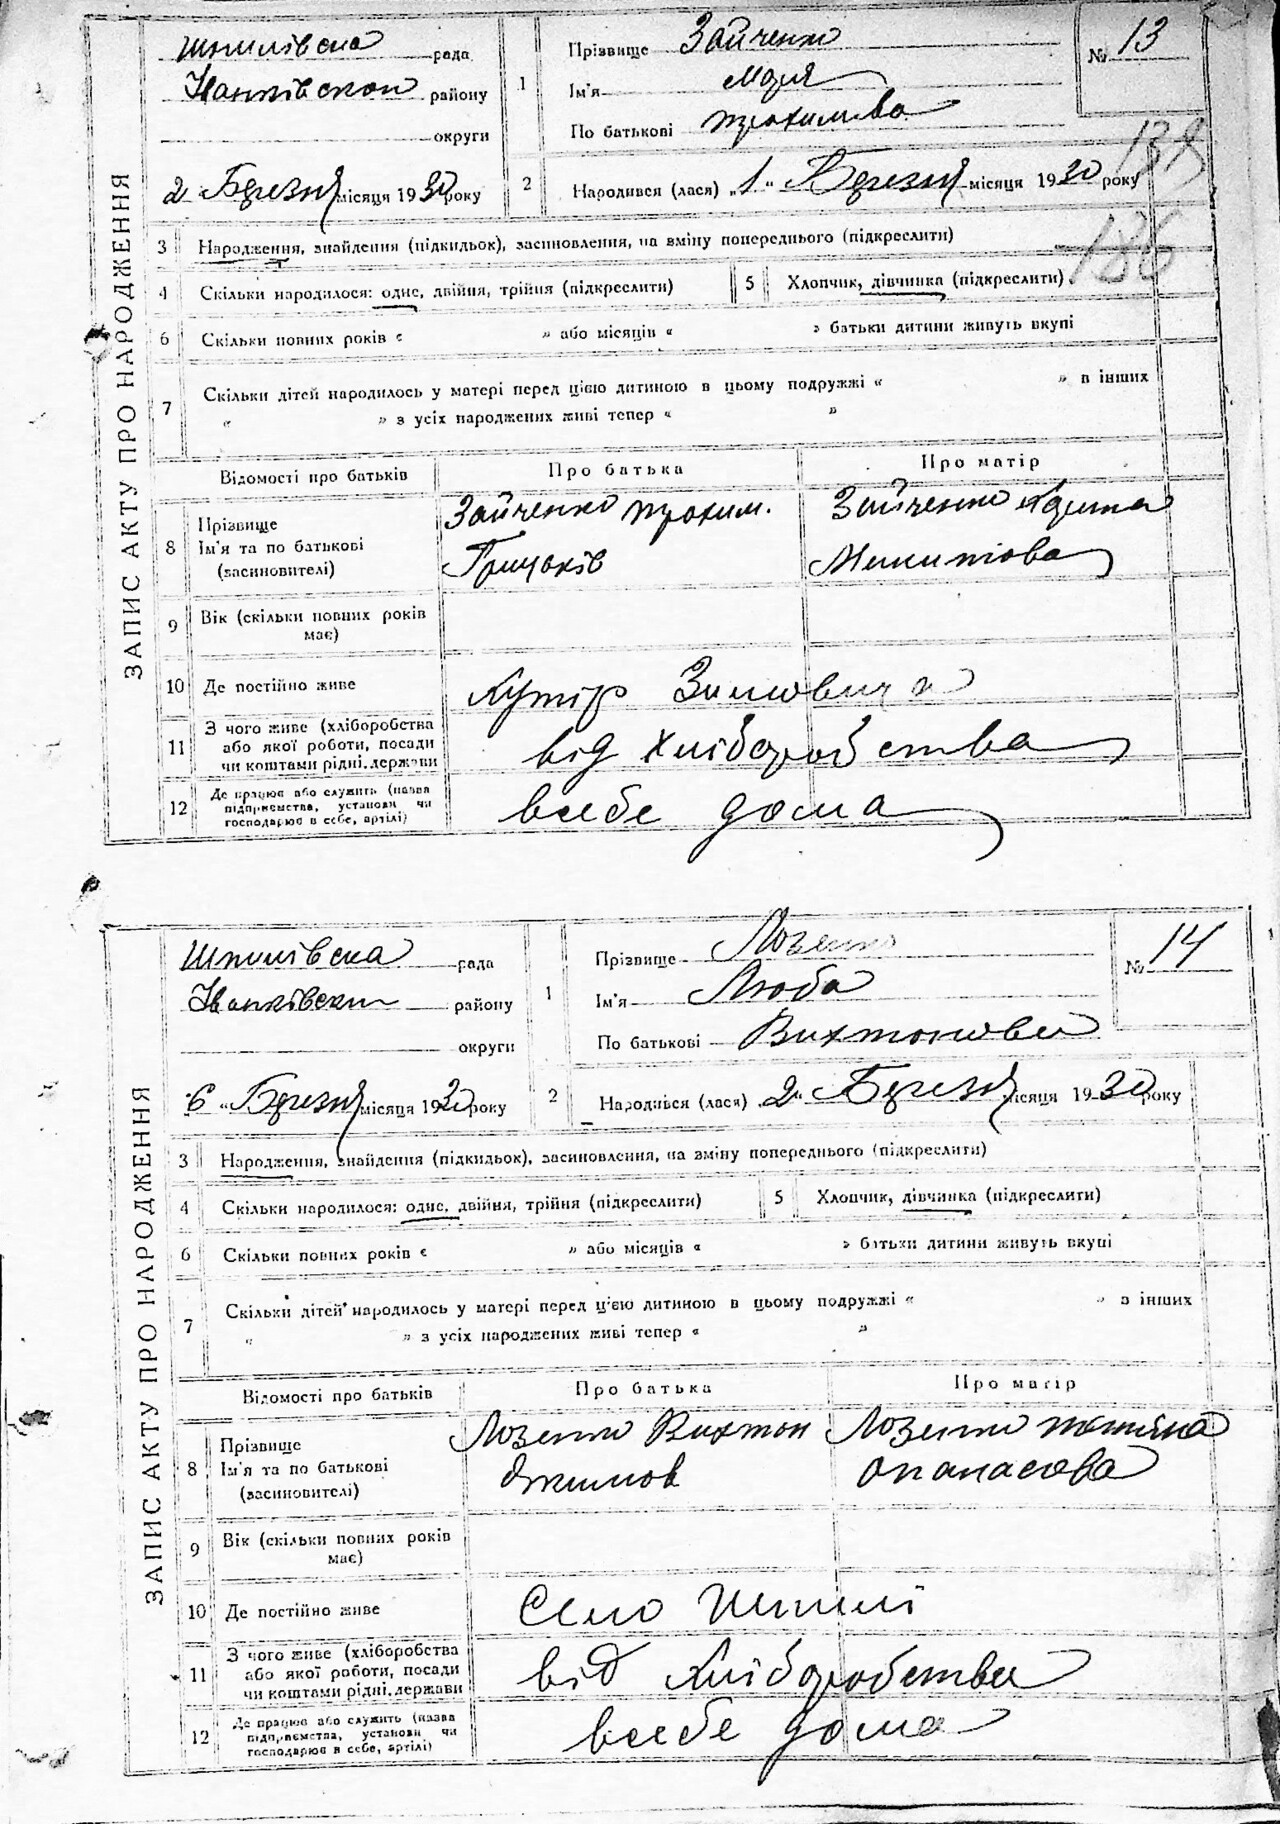 ЗАПИС АКТУ ПРО НАРОДЖЕННЯ
Шпилівска рада
Іванківскои району
округи
2 Березня місяця 1930 року
1
Прізвище Зайченко
Ім'я Марія
По батькові Трохимова
№ 13
138
186
2
Народився (лася) „1“ Березня місяця 1930 року
3 Народження, знайдення (підкидьок), засиновлення, на зміну попереднього (підкреслити)
4 Скільки народилося: одне, двійня, трійня (підкреслити)
5 Хлопчик, дівчинка (підкреслити)
6 Скільки повних років « » або місяців « » батьки дитини живуть вкупі
7 Скільки дітей народилось у матері перед цією дитиною в цьому подружжі « » в інших
« » з усіх народжених живі тепер « »
Відомості про батьків Про батька Про матір
8 Прізвище
Ім'я та по батькові
(засиновителі)
Зайченко Трохим.
Грицьків
Зайченко
Микитова
9 Вік (скільки повних років
має)
10 Де постійно живе Хутір Зимовища
11 З чого живе (хліборобства
або якої роботи, посади
чи коштами рідні, держави
від хліборобства
12 Де працює або служить (назва
підприємства, установи чи
господарює в себе, артілі)
всебе дома
ЗАПИС АКТУ ПРО НАРОДЖЕННЯ
Шпилівска рада
Іванківскои району
округи
6 „Березня місяця 1930 року
1
Прізвище Лозенко
Ім'я Люба
По батькові Вихтонова
№ 14
2
Народився (лася) „2“ Березня місяця 1930 року
3 Народження, знайдення (підкидьок), засиновлення, на зміну попереднього (підкреслити)
4 Скільки народилося: одне, двійня, трійня (підкреслити)
5 Хлопчик, дівчинка (підкреслити)
6 Скільки повних років « » або місяців « » батьки дитини живуть вкупі
7 Скільки дітей народилось у матері перед цією дитиною в цьому подружжі « » в інших
« » з усіх народжених живі тепер « »
Відомості про батьків Про батька Про матір
8 Прізвище
Ім'я та по батькові
(засиновителі)
Лозенко Вихтон
Лозенко
опанасова
9 Вік (скільки повних років
має)
10 Де постійно живе Село Шпилі
11 З чого живе (хліборобства
або якої роботи, посади
чи коштами рідні, держави
від хліборобства
12 Де працює або служить (назва
підприємства, установи чи
господарює в себе, артілі)
всебе дома